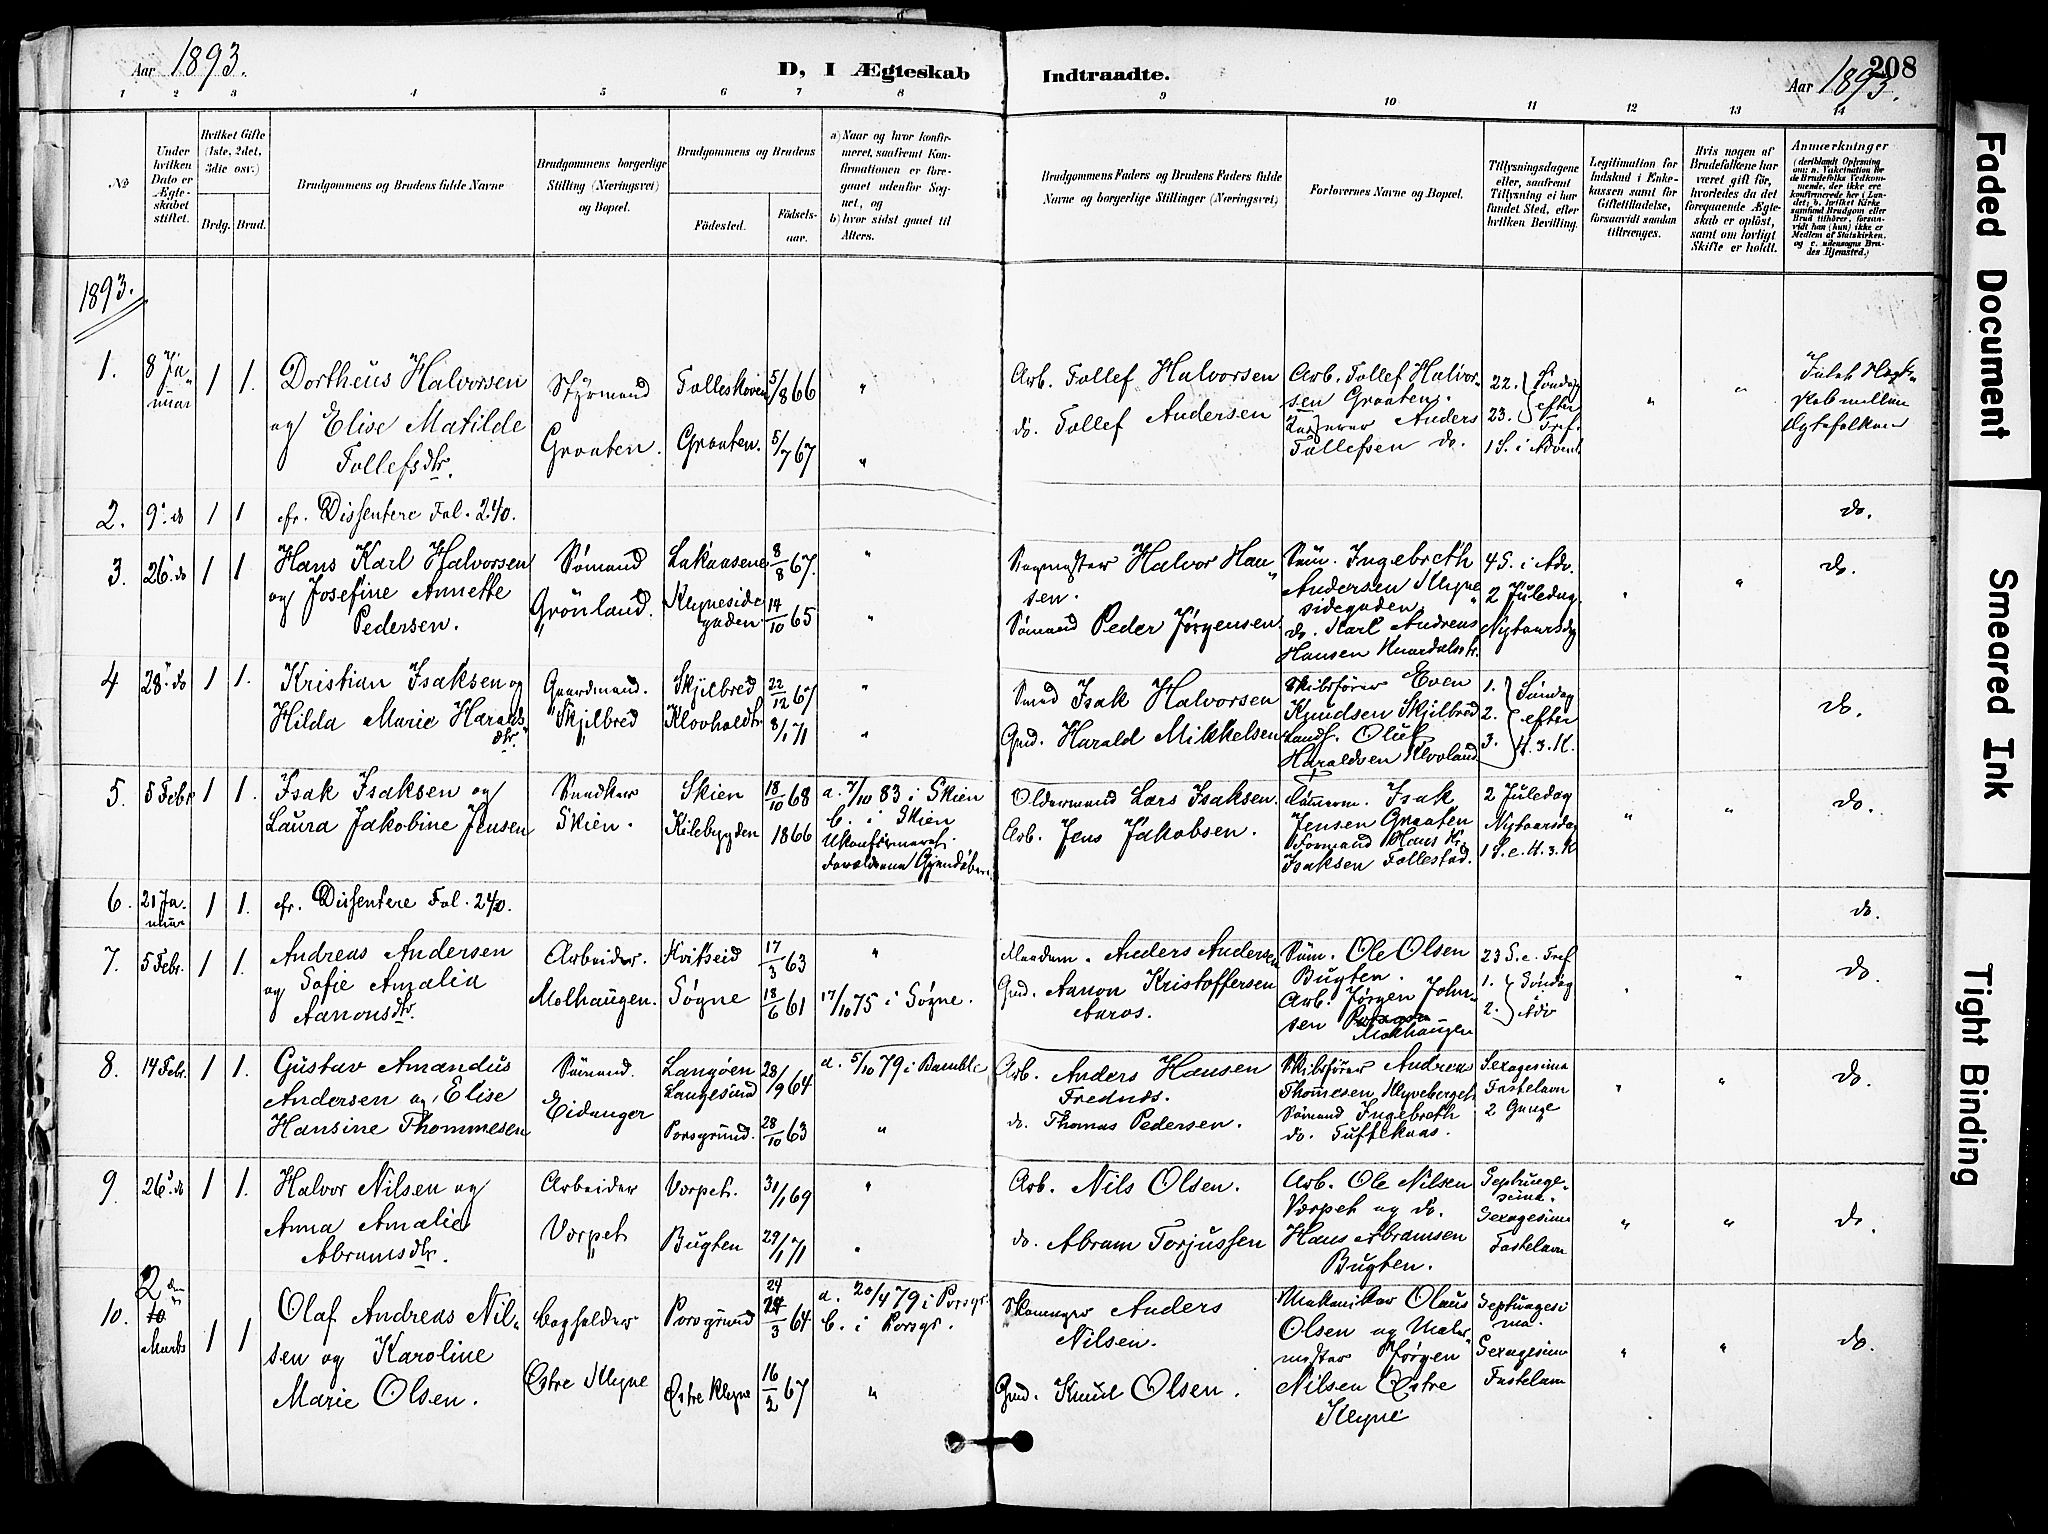 Aar 1893.
D, I Ægteskab Indtraadte.
Aar 1893.
208
1 2 3 4 5 6 7 8 9 10 11 12 13 14
No
Under hvilken Dato er Ægteskabet stiftet.
Hvilket Gifte (1ste, 2det, 3die osv.)
Brdg. Brud.
Brudgommens og Brudens fulde Navne
Brudgommens borgerlige Stilling (Næringsvei) og Bopæl.
Brudgommens og Brudens
Födested.
Födselsaar.
a) Naar og hvor konfirmeret, saafremt Konfirmationen er foregaaet udenfor Sognet, og
b) hvor sidst gaaet til Alters.
Brudgommens Faders og Brudens Faders fulde Navne og borgerlige Stillinger (Næringsvei)
Forlovernes Navne og Bopæl.
Tillysningsdagene eller, saafremt Tillysning ei har fundet Sted, efter hvilken Bevilling.
Legitimation for Indskud i Enkekassen samt for Giftetilladelse, forsaavidt saadan tiltrænges.
Hvis nogen af Brudefolkene har været gift før, hvorledes da det foregaaende Ægteskab er opløst, samt om lovligt Skifte er holdt.
Anmærkninger
(deriblandt Oplysning om: a. Vakcination for de Brudefolks Vedkommende, der ikke ere konfirmerede her i Landet; b. hvilket Kirkesamfund Brudgom eller Brud tilhører, forsaavidt han (hun) ikke er Medlem af Statskirken. og c. udensogns Brudes Hjemsted.)
1893.
1. 8 Januar 1 1. Dortheus Halvorsen Styrmand 5/8 66 " Arb. Tollef Halvorsen Arb. Tollef Halvorsen Graaten. 22. 23. Søndag efter Tref. " "
og Elise Matilde Tollefsdtr. Graaten. Graaten. 5/7 67 " do. Tollef Andersen Anders Tollefsen do. 1 S. i Advent
2. 9. do 1 1 cfr. Dissentere Fol. 240. do.
3. 26. do 1 1 Hans Karl Halvorsen Sømand 8/8 67. " Halvor Hansen. Ingebreth Andersen Klynesidegaden. 4 S. i Adv. " " do.
og Josefine Annette Pedersen. Grönland. Klyneside gaden 14/10 65 " Sømand Peder Jørgensen do. Karl Andreas Hansen 2 Juledag. Nytaarsdg
4 28. do 1 1. Kristian Isaksen og Gaardmand. Skjilbred 22/12 67 " Isak Halvorsen Skibsfører Even Knudsen Skjilbred 1. 2. 3. Søndag efter H. 3. K. do.
Hilda Marie Haraldsdtr. Skjilbred 8/1 71 " Gmd. Harald Mikkelsen Oluf Haraldsen
5. 5 Febr 1 1. Isak Isaksen og Snedker Skien 18/10 68 a. 7/10 83 i Skien Oldermand Lars Isaksen. Tømmerm. Isak Jensen Graaten 2 Juledag " " do.
Laura Jakobine Jensen Skien. Kilebygden 1866 b. i Skien Ukonfirmeret. Arb. Jens Jakobsen. Formand Hans Kr. Isaksen Follestad. Nytaarsdag 1 S. e. H. 3. K
6. 21 Januar 1 1. cfr. Dissentere Fol. 240. do.
7. 5 Febr. 1 1. Andreas Andersen Arbeider. Hvitseid 17/3 63 " Anders Andersen Ole Olsen Bugten. 23 S. e. Tref " " do.
og Sofie Amalia Aanonsdtr. Molhaugen. Søgne 18/6 61 17/10 75 i Søgne. Gmd. Aanon Kristoffersen Aaros. Arb. Jørgen Johnsen Molhaugen 1. 2. Søndag i Adv
8. 14 Febr. 1 1. Gustav Amandus Sømand. Langøen Langesund 28/9 64 a. 5/10 79 i Bamble Arb. Anders Hansen Frednæs. Skibsfører Andreas Thommesen Klyveberget Sexagesima " " do.
Andersen og Elise Hansine Thommesen Eidanger Porsgrund. 28/10 63 " do. Thomas Pedersen. Sømand Ingebreth do. Tuftekaas. Fastelavn 2 Gange
9. 26. do 1 1. Halvor Nilsen og Arbeider Værpet. 31/1 69 " Arb. Nils Olsen. Arb. Ole Nilsen Værpet og do. Septuagesima. " " do.
Anna Amalie Abramsdtr. Værpet Bugten 29/1 71 " do. Abram Torjussen Hans Abramsen Bugten. Sexagesima Fastelavn
10. 2 den 10 Marts 1 1 Olaf Andreas Nil- Bogholder Porsgrund 24/3 64 a. 20/4 79 i Porsgr. Anders Nilsen. Mekaniker Olaus Olsen og Maler- Septuagesima. " " do.
b. i Porsgr.
sen og Karoline Marie Olsen. Østre Klyne Østre Klyne 16/2 67 " Gmd. Knud Olsen. mester Jørgen Nilsen Østre Klyne Sexagesima Fastelavn
Faded Document
Smeared Ink
Tight Binding